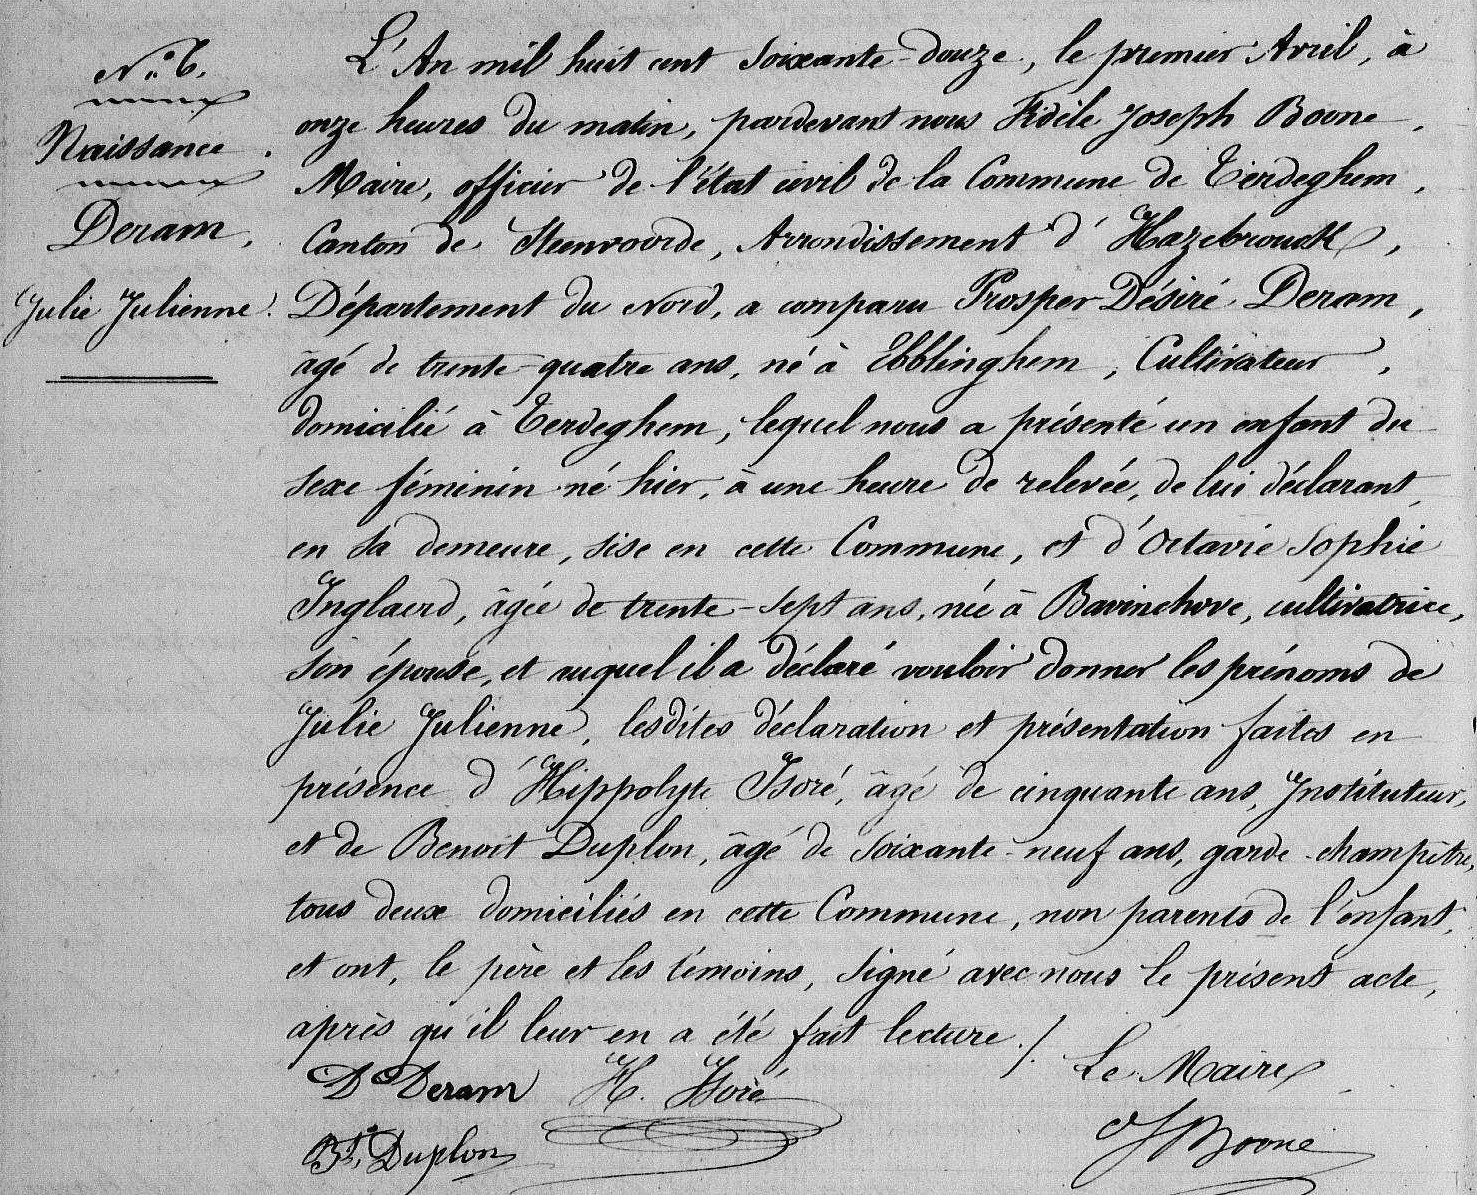 N.° 6.
Naissance.
Deram,
Julie Julienne.
L'An mil huit cent soixante-douze, le premier Avril, à
onze heures du matin, pardevant nous Fidèle Joseph Boone,
Maire, officier de l'état civil de la Commune de Terdeghem,
Canton de Steenvoorde, Arrondissement d'Hazebrouck,
Département du Nord, a comparu Prosper Désiré Deram,
âgé de trente-quatre ans, né à Ebblinghem, Cultivateur,
domicilié à Terdeghem, lequel nous a présenté un enfant du
sexe féminin né hier, à une heure de relevée, de lui déclarant,
en sa demeure, sise en cette Commune, et d'Octavie Sophie
Inglaerd, âgée de trente-sept ans, née à Bavinchove, cultivatrice,
son épouse, et auquel il a déclaré vouloir donner les prénoms de
Julie Julienne, lesdites déclaration et présentation faites en
présence d'Hippolyte Isoré, âgé de cinquante ans, Instituteur,
et de Benoit Duplon, âgé de soixante-neuf ans, garde-champêtre,
tous deux domiciliés en cette Commune, non parents de l'enfant,
et ont, le père et les témoins, signé avec nous le présent acte,
après qu'il leur en a été fait lecture./.
D Deram H. Isoré Le Maire
Bt. Duplon FJBoone